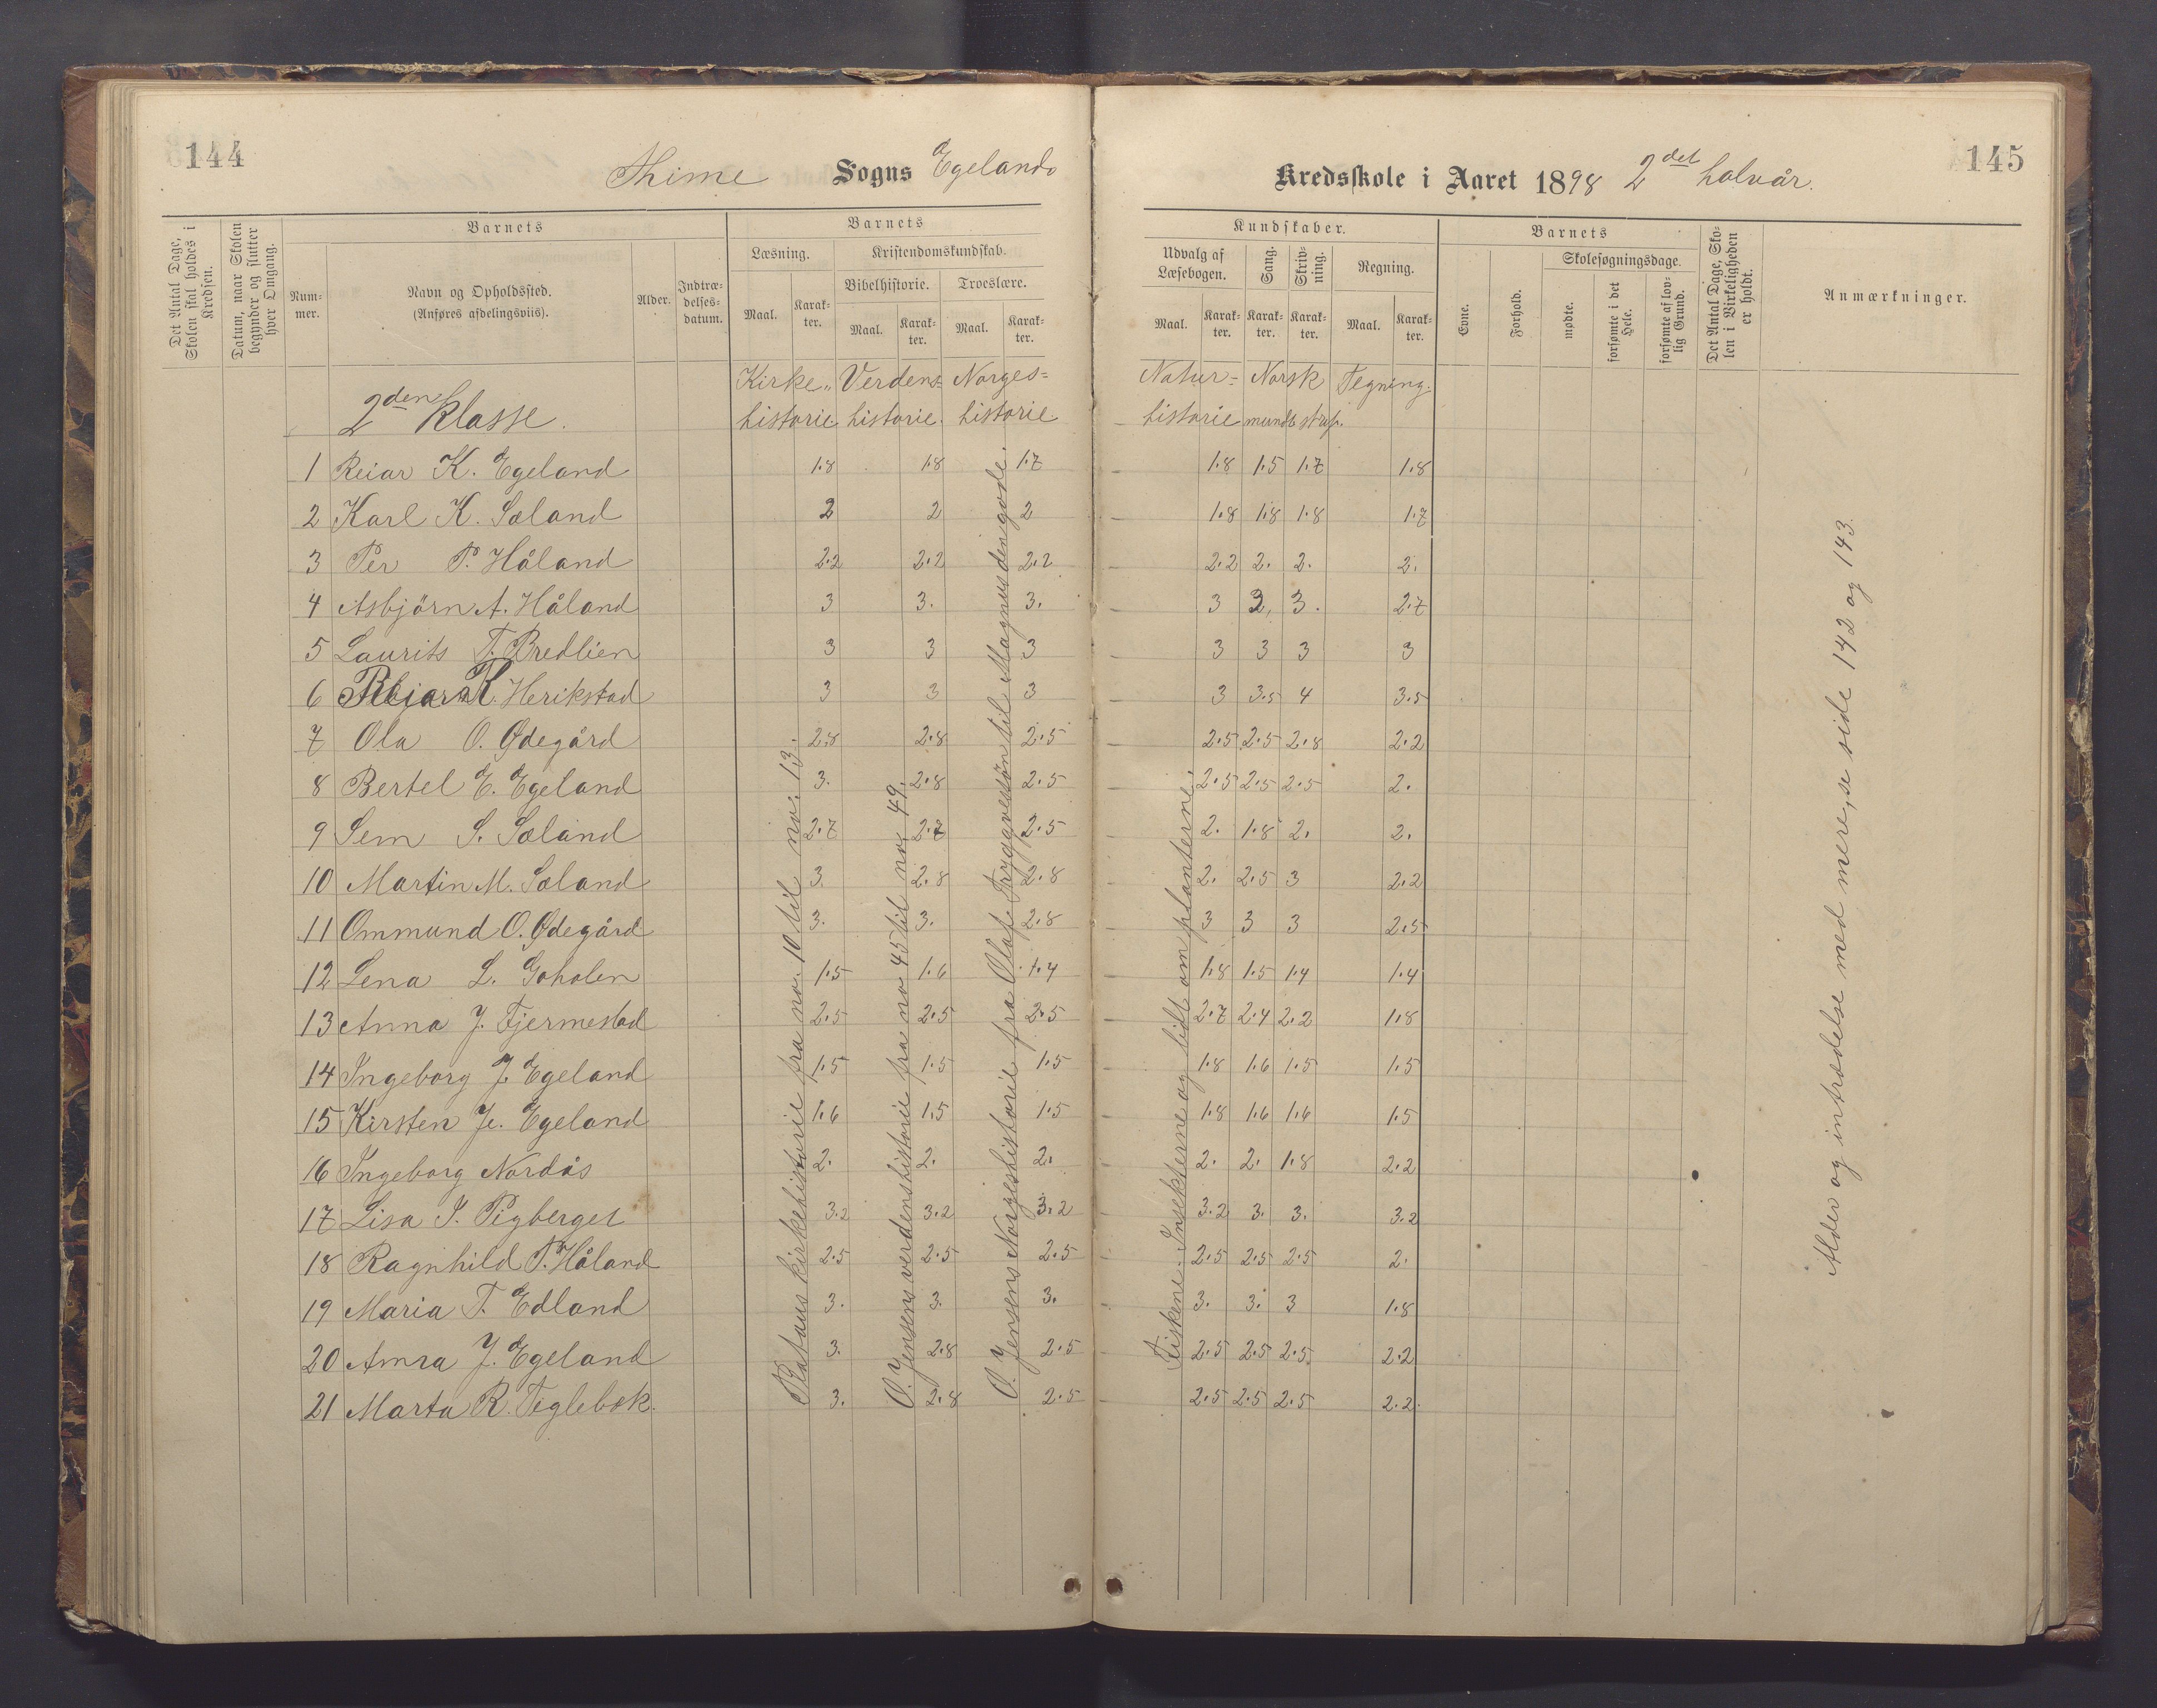 144
Thime Sogns Egelands
Kredsskole i Aaret 1898 2det halvår.
145
Det Antal Dage, Skolen skal holdes i Kredsen.
Datum, naar Skolen begynder og slutter hver Omgang.
Barnets
Num-mer.
Navn og Opholdssted.
(Anføres afdelingsviis).
Alder.
Indtræ-delses-datum.
Barnets
Læsning.
Kristendomskundskab.
Bibelhistorie. Troeslære.
Maal. Karak-ter. Maal. Karak-ter. Maal. Karak-ter.
Kundskaber.
Udvalg af Læsebogen. Sang. Skriv-ning. Regning.
Maal. Karak-ter. Karak-ter. Karak-ter. Maal. Karak-ter.
Barnets
Evne. Forhold.
Skolesøgningsdage.
mødte. forsømte i det Hele. forsømte af lov-lig Grund.
Det Antal Dage, Sko-len i Virkeligheden er holdt.
Anmærkninger.
2den Klasse.
Kirke- historie Verdens- historie. Norges- historie
Natur- historie Norsk mundt. skrif. Tegning.
1 Reiar K. Egeland 1.8 1.8 1.7 1.8 1.5 1.7 1.8
2 Karl K. Sæland 2 2 2 1.8 1.8 1.8 1.7
3 Per P. Håland 2.2 2.2 2.2 2.2 2. 2. 2.
4 Asbjörn A. Håland 3 3. 3. 3 2. 3. 2.7
5 Laurits T. Bredlien 3 3 3 3 3 3 3
6 K. Herikstad 3 3 3 3 3.5 4 3.5
7 Ola O. Ødegård 2.8 2.8 2.5 2.5 2.5 2.8 2.2
8 Bertel E. Egeland 3. 2.8 2.5 2.5 2.5 2.5 2.
9 Sem S. Sæland 2.7 2.7 2.5 2. 1.8 2. 2.
10 Martin M. Sæland 3. 2.8 2.8 2. 2.5 3 2.2
11 Ommund O. Ødegård 3. 3. 2.8 3 3 3 2.5
12 Lena L. Goholen 1.5 1.6 1.4 1.8 1.5 1.4 1.4
13 Anna J. Fjermestad 2.5 2.5 2.5 2.7 2.4 2.2 1.8
14 Ingeborg J. Egeland 1.5 1.5 1.5 1.8 1.6 1.5 1.5
15 Kirsten Je. Egeland 1.6 1.5 1.5 1.8 1.6 1.6 1.5
16 Ingeborg Nordås 2. 2. 2. 2. 2. 1.8 2.2
17 Lisa I. Pigberget 3.2 3.2 3.2 3.2 3. 3. 3.2
18 Ragnhild P. Håland 2.5 2.5 2.5 2.5 2.5 2.5 2.
19 Maria T. Edland 3. 3. 3. 3. 3. 3 1.8
20 Amra J. Egeland 3. 2.8 2.5 2.5 2.5 2.5 2.2
21 Marta R. Teglebæk. 3. 2.8 2.5 2.5 2.5 2.5 2.2
kirkehistorie fra no. 10 til no. 13.
O. Jensens verdenshistorie fra no 45 til no. 49.
O. Jensens Norgeshistorie fra Olaf Tryggvessøn til Magnus den gode.
Fiskene. Insekterne og lidt om planterne.
Alder og intrædelse med mere, se side 142 og 143.